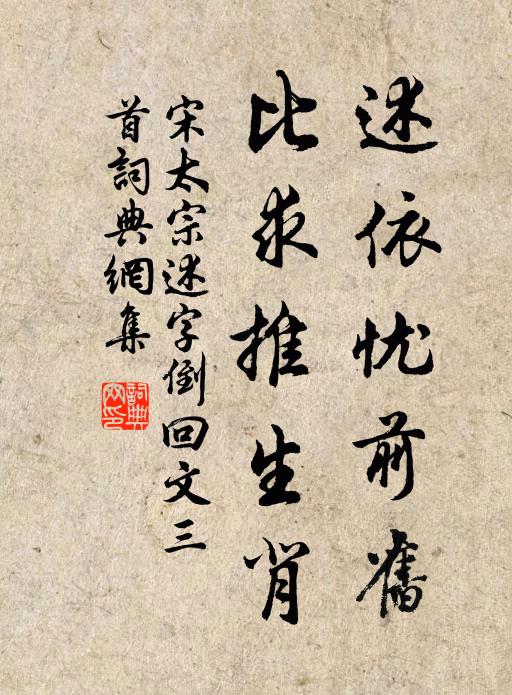 述依忧前舊
比求推生肖
宋太宗述字倒回文三
首詞典網集
詞典网印